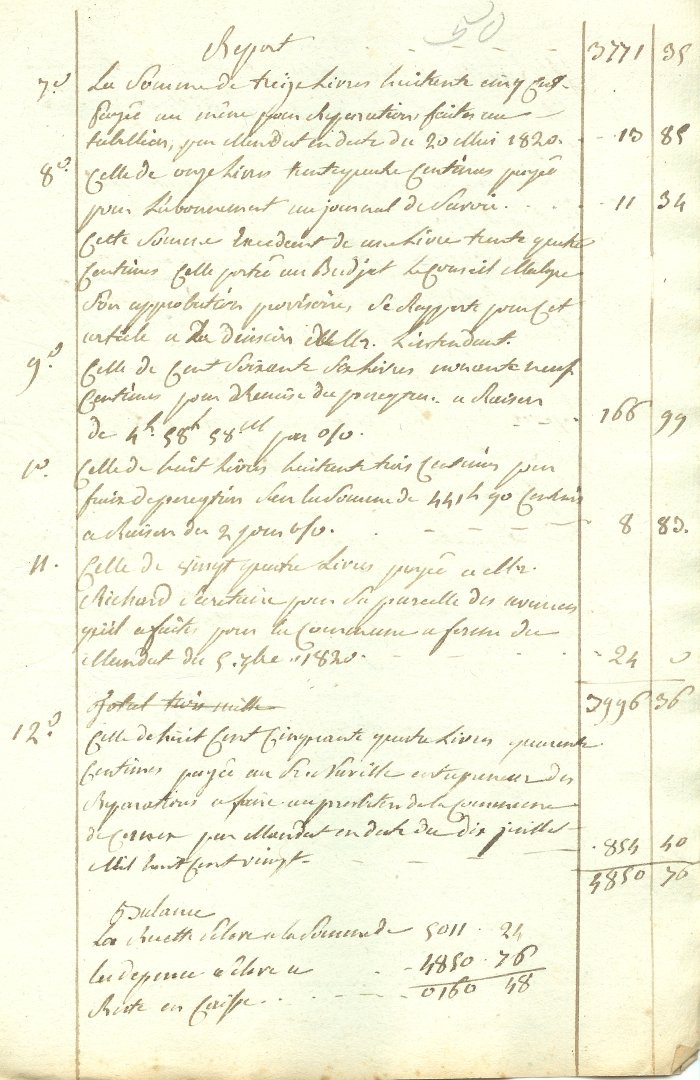 50
Report - - - 3771 35
7.° La Somme de treize Livres huitante cinq cent.
payée au même pour Réparations faites au
tabellion, par Mandat en date du 20 Mai 1820. - 13 85
8°. Celle de onze Livres trente quatre Centimes payée
pour L'abonnement au journal de Savoie. - - - 11 34
Cette Somme Excédent de une Livre trente quatre
Centimes Celle portée au Budjet Le Conseil Malgré
Son approbation provisoire, Se Rapporte pour Cet
article a La décision de Mr. L'intendant.
9.° Celle de Cent Soixante Six Livres nonante neuf
Centimes pour Remise du pereqteur a Raison
de 4# 58 58 par o/o. - - - 166 99
10. Celle de huit Livres huitante trois Centimes pour
fraix de pereqtion Sur la Somme de 441# 90 Centimes
a Raison du 2 pour o/o. - - - 8 83.
11. Celle de vingt quatre Livres payée a Mr.
Richard Sécrétaire pour Sa parcelle des avances
qu'il a faites pour la Commune a forme du
Mandat du 5. 7bre 1820. - - - 24 0
Total trois mille 3996 36
12° Celle de huit Cent Cinquante quatre Livres quarente
Centimes payée au Sr entrepreneur des
Réparations a faire au presbitère de la Commune
de par Mandat en date du dix juillet
Mil huit Cent vingt - - - 854 40
4850 76
Balance
La Recette S'éleve a la Somme de 5011 . 24
La depense S'éleve a - - 4850 . 76
Reste en Caisse. - - - 0160 48